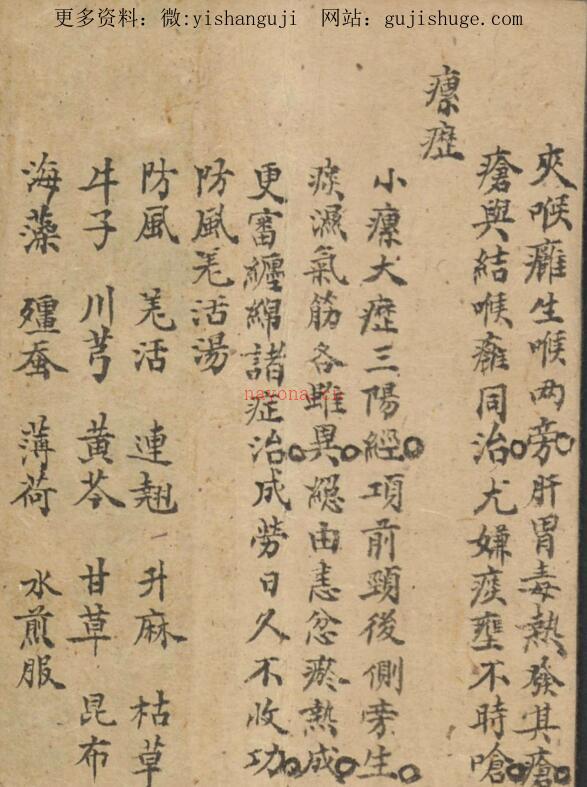 更多资料：微:yishanguji 网站：gujishuge.com
夾喉癰生喉两旁肝胃毒熱發其瘡
瘡與結喉癰同治尤嫌痰壅不時嗆
瘰癧
小瘰大癧三陽經項前頸後側旁生
痰濕氣筋名雖異總由恚忿瘀熱成
更審纏綿諸症治成勞日久不收功
防風羌活湯
防風 羌活 連翹 升麻 枯草
牛子 川芎 黃芩 甘草 昆布
海藻 殭蚕 薄荷 水煎服
nayona.cn